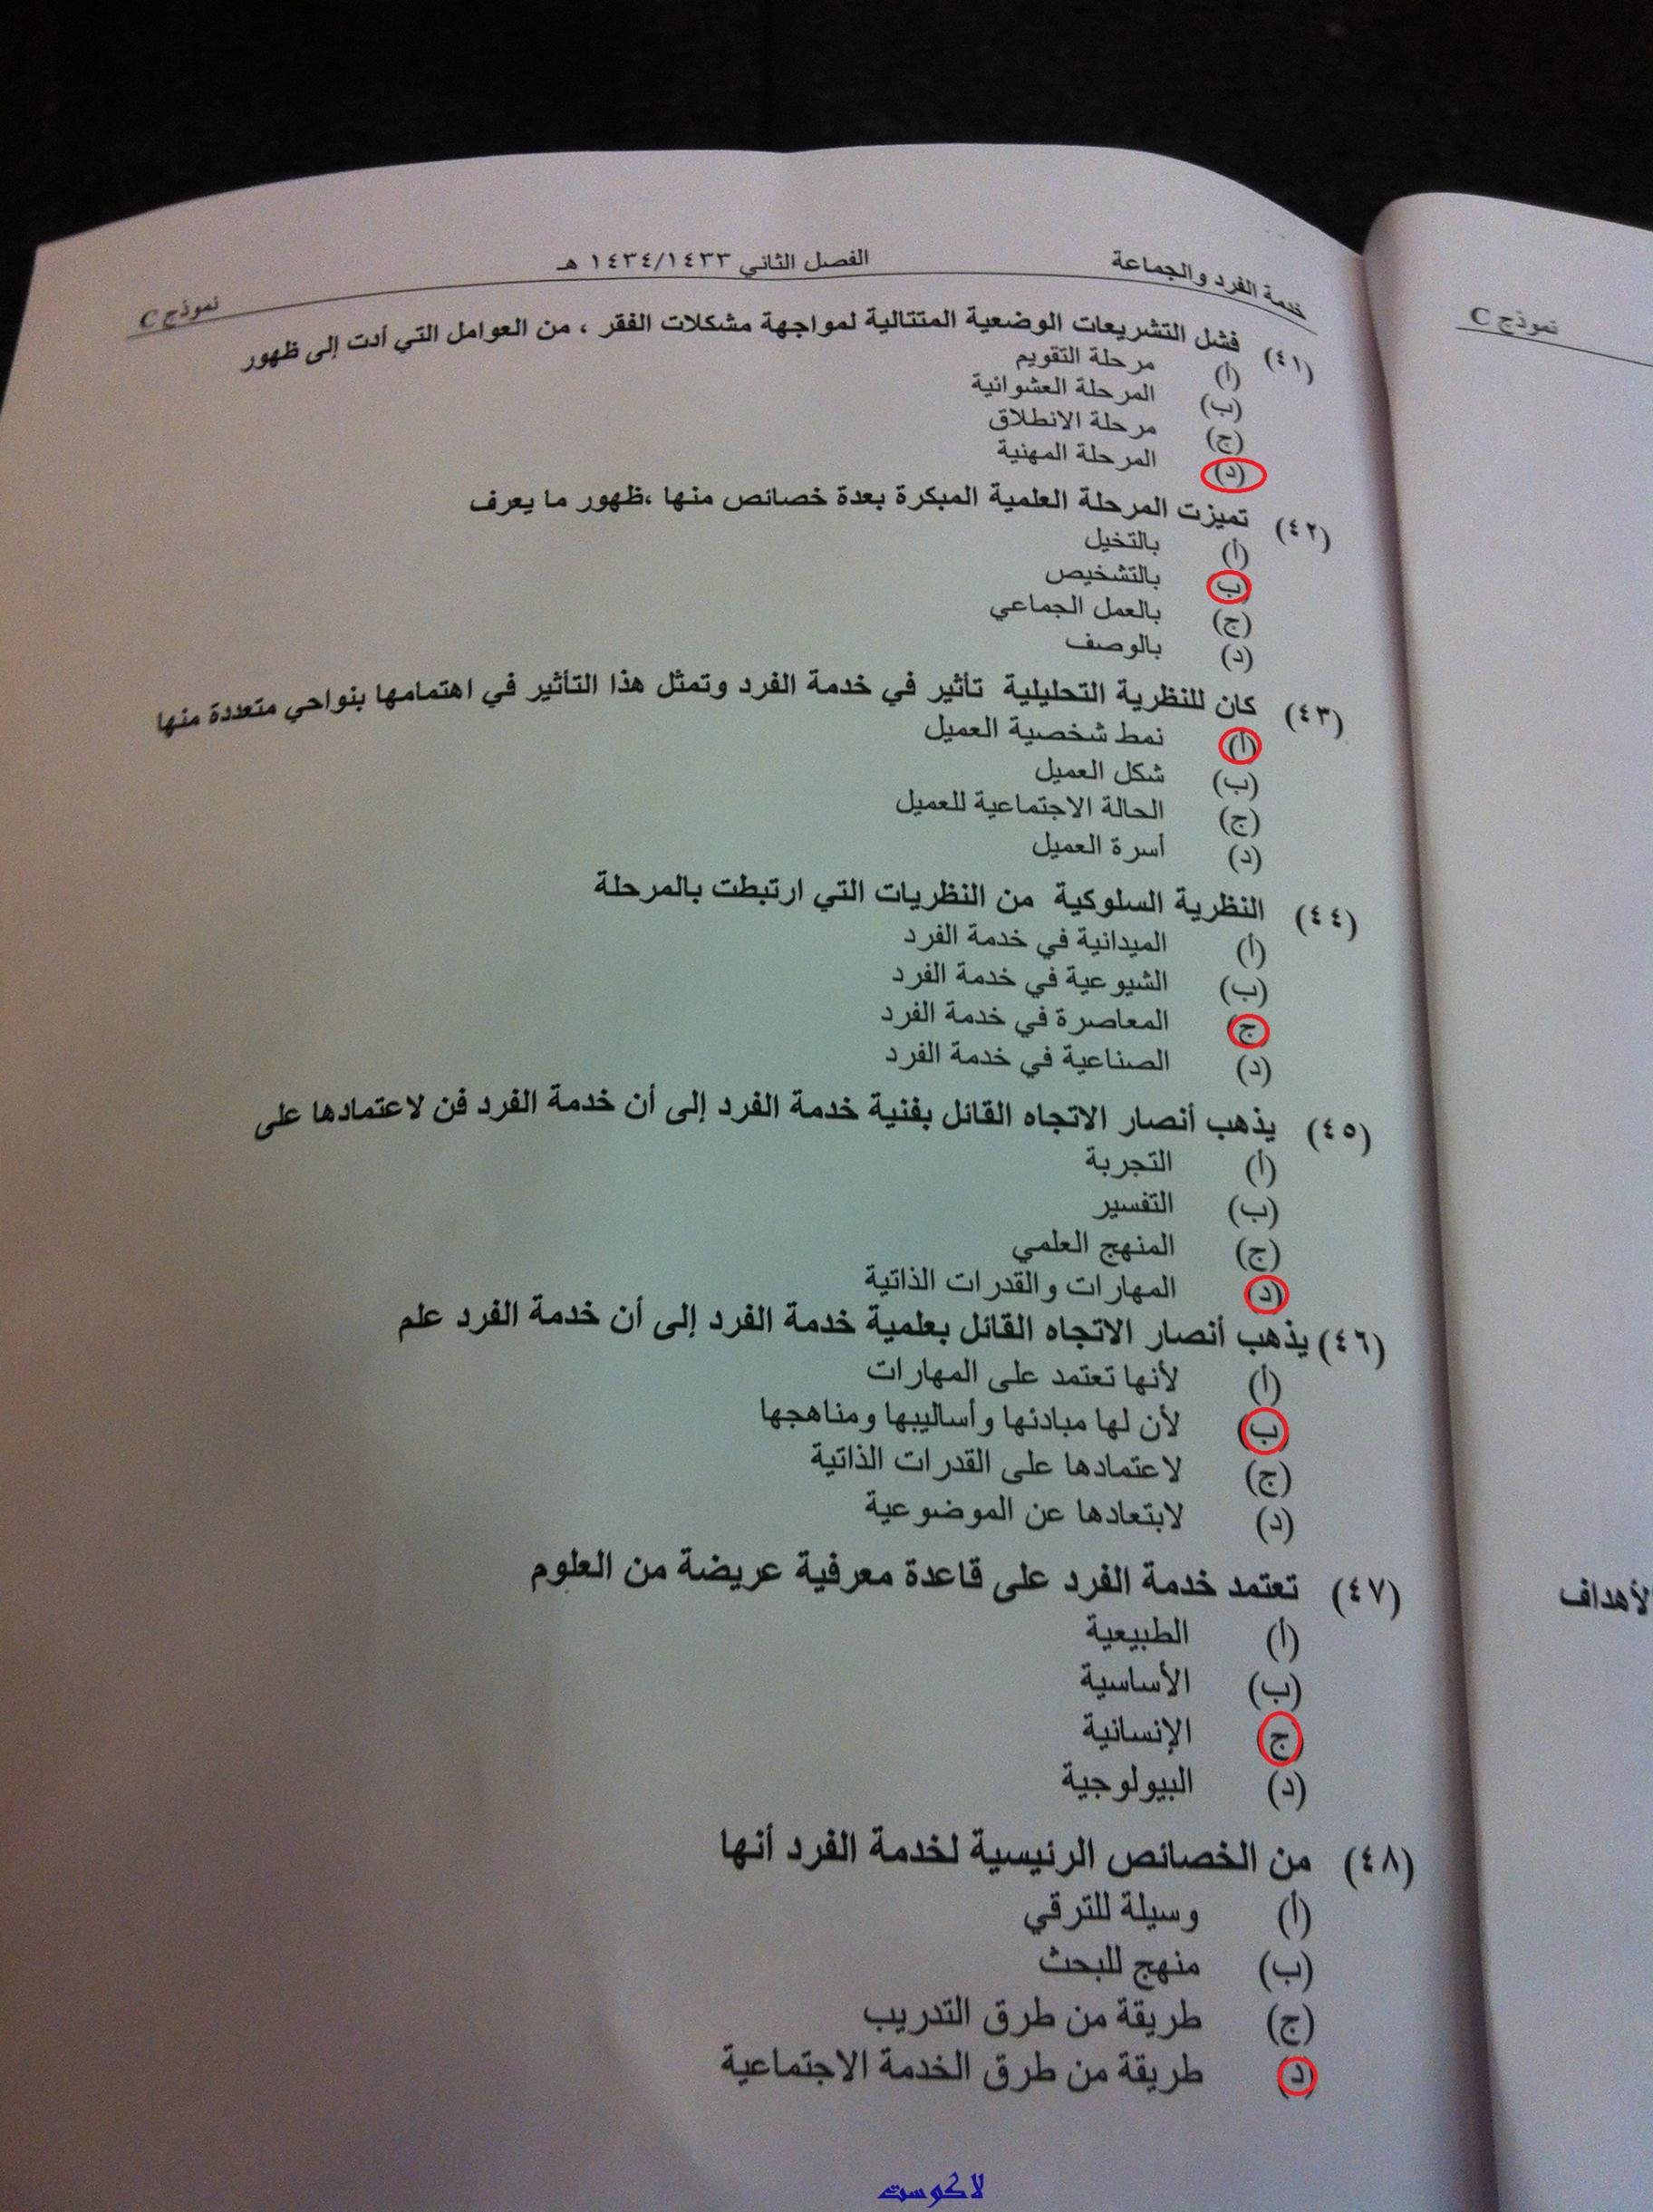 خدمة الفرد والجماعة
الفصل الثاني ١٤٣٤/١٤٣٣ هـ
نموذج C
(٤١) فشل التشريعات الوضعية المتتالية لمواجهة مشكلات الفقر ، من العوامل التي أدت إلى ظهور
(أ) مرحلة التقويم
(ب) المرحلة العشوائية
(ج) مرحلة الانطلاق
(د) المرحلة المهنية
(٤٢) تميزت المرحلة العلمية المبكرة بعدة خصائص منها ،ظهور ما يعرف
(أ) بالتخيل
(ب) بالتشخيص
(ج) بالعمل الجماعي
(د) بالوصف
(٤٣) كان للنظرية التحليلية تأثير في خدمة الفرد وتمثل هذا التأثير في اهتمامها بنواحي متعددة منها
(أ) نمط شخصية العميل
(ب) شكل العميل
(ج) الحالة الاجتماعية للعميل
(د) أسرة العميل
(٤٤) النظرية السلوكية من النظريات التي ارتبطت بالمرحلة
(أ) الميدانية في خدمة الفرد
(ب) الشيوعية في خدمة الفرد
(ج) المعاصرة في خدمة الفرد
(د) الصناعية في خدمة الفرد
(٤٥) يذهب أنصار الاتجاه القائل بفنية خدمة الفرد إلى أن خدمة الفرد فن لاعتمادها على
(أ) التجربة
(ب) التفسير
(ج) المنهج العلمي
(د) المهارات والقدرات الذاتية
(٤٦) يذهب أنصار الاتجاه القائل بعلمية خدمة الفرد إلى أن خدمة الفرد علم
(أ) لأنها تعتمد على المهارات
(ب) لأن لها مبادئها وأساليبها ومناهجها
(ج) لاعتمادها على القدرات الذاتية
(د) لابتعادها عن الموضوعية
(٤٧) تعتمد خدمة الفرد على قاعدة معرفية عريضة من العلوم
(أ) الطبيعية
(ب) الأساسية
(ج) الإنسانية
(د) البيولوجية
(٤٨) من الخصائص الرئيسية لخدمة الفرد أنها
(أ) وسيلة للترقي
(ب) منهج للبحث
(ج) طريقة من طرق التدريب
(د) طريقة من طرق الخدمة الاجتماعية
لاكوست
نموذج C
لأهداف